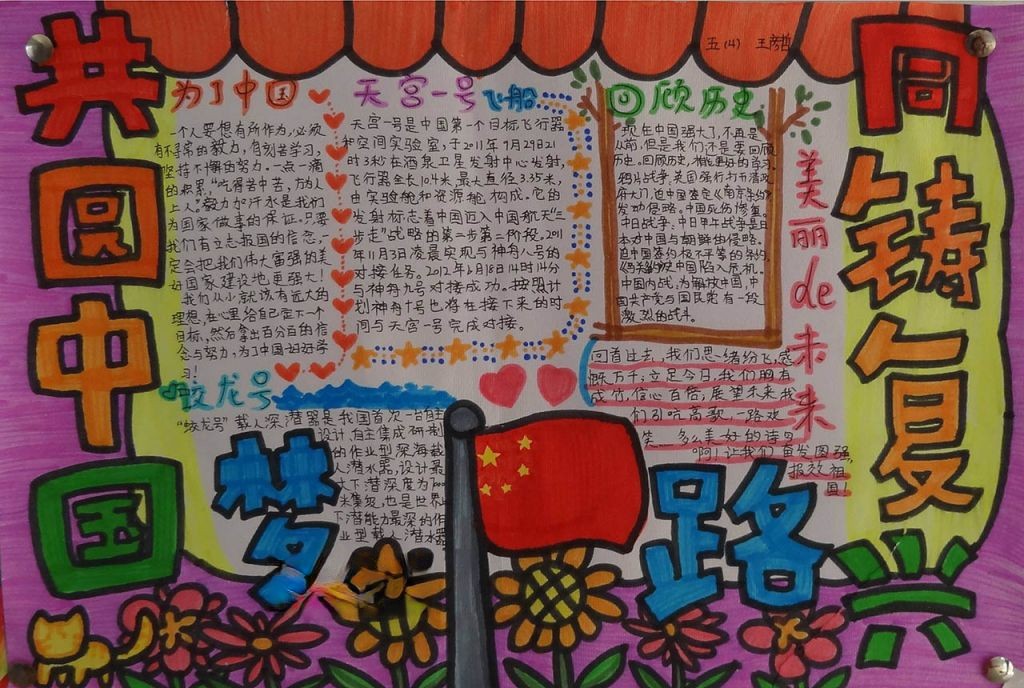 五(4) 王彦哲
共圆中国
梦
同铸复兴
路
为了中国
一个人要想有所作为,必须
有不寻常的毅力,有刻苦学习,
坚持不懈的努力。一点一滴
的积累,"吃得苦中苦,方为人
上人。"毅力加汗水是我们
为国家做事的保证。只要
我们有立志报国的信念,一
定会把我们伟大富强的美
好国家建设地更强大!
我们从小就该有远大的
理想,在心里给自己定下一个
目标,然后拿出百分百的信
念与努力,为了中国好好学
习!
天宫一号飞船
天宫一号是中国第一个目标飞行器
和空间实验室,于2011年9月29日21
时3秒在酒泉卫星发射中心发射,
飞行器全长10.4米,最大直径3.35米,
由实验舱和资源舱构成。它的
发射标志着中国迈入中国航天"三
步走"战略的第二步第二阶段。2011
年11月3日凌晨实现与神舟八号的
对接任务。2012年6月18日14时14分
与神舟九号对接成功。按照计
划神舟十号也将在接下来的时
间与天宫一号完成对接。
回顾历史
现在中国强大了,不再是
从前,但是我们还是要回顾
历史。回顾历史,才能更好的学习。
鸦片战争,英国强行打开清政
府大门,迫中国签定《南京条约》
发动侵略。中国死伤惨重。
中日战争:中日甲午战争是日
本对中国与朝鲜的侵略。
迫中国签约极不平等的条约
中国陷入危机。
中国内战,为解放中国,中
国共产党与国民党有一段
激烈的战斗。
美丽de未来
回首过去,我们思绪纷飞,感
慨万千;立足今日,我们胸有
成竹,信心百倍;展望未来,我
们引吭高歌,一路欢
笑…多么美好的诗句
啊!让我们奋发图强,
报效祖
国!
蛟龙号
"蛟龙号"载人深潜器是我国首次一台自主
设计、自主集成研制
的作业型深海载
人潜水器,设计最
大下潜深度为7000
米级,也是世界
下潜能力最深的作
业型载人潜水器